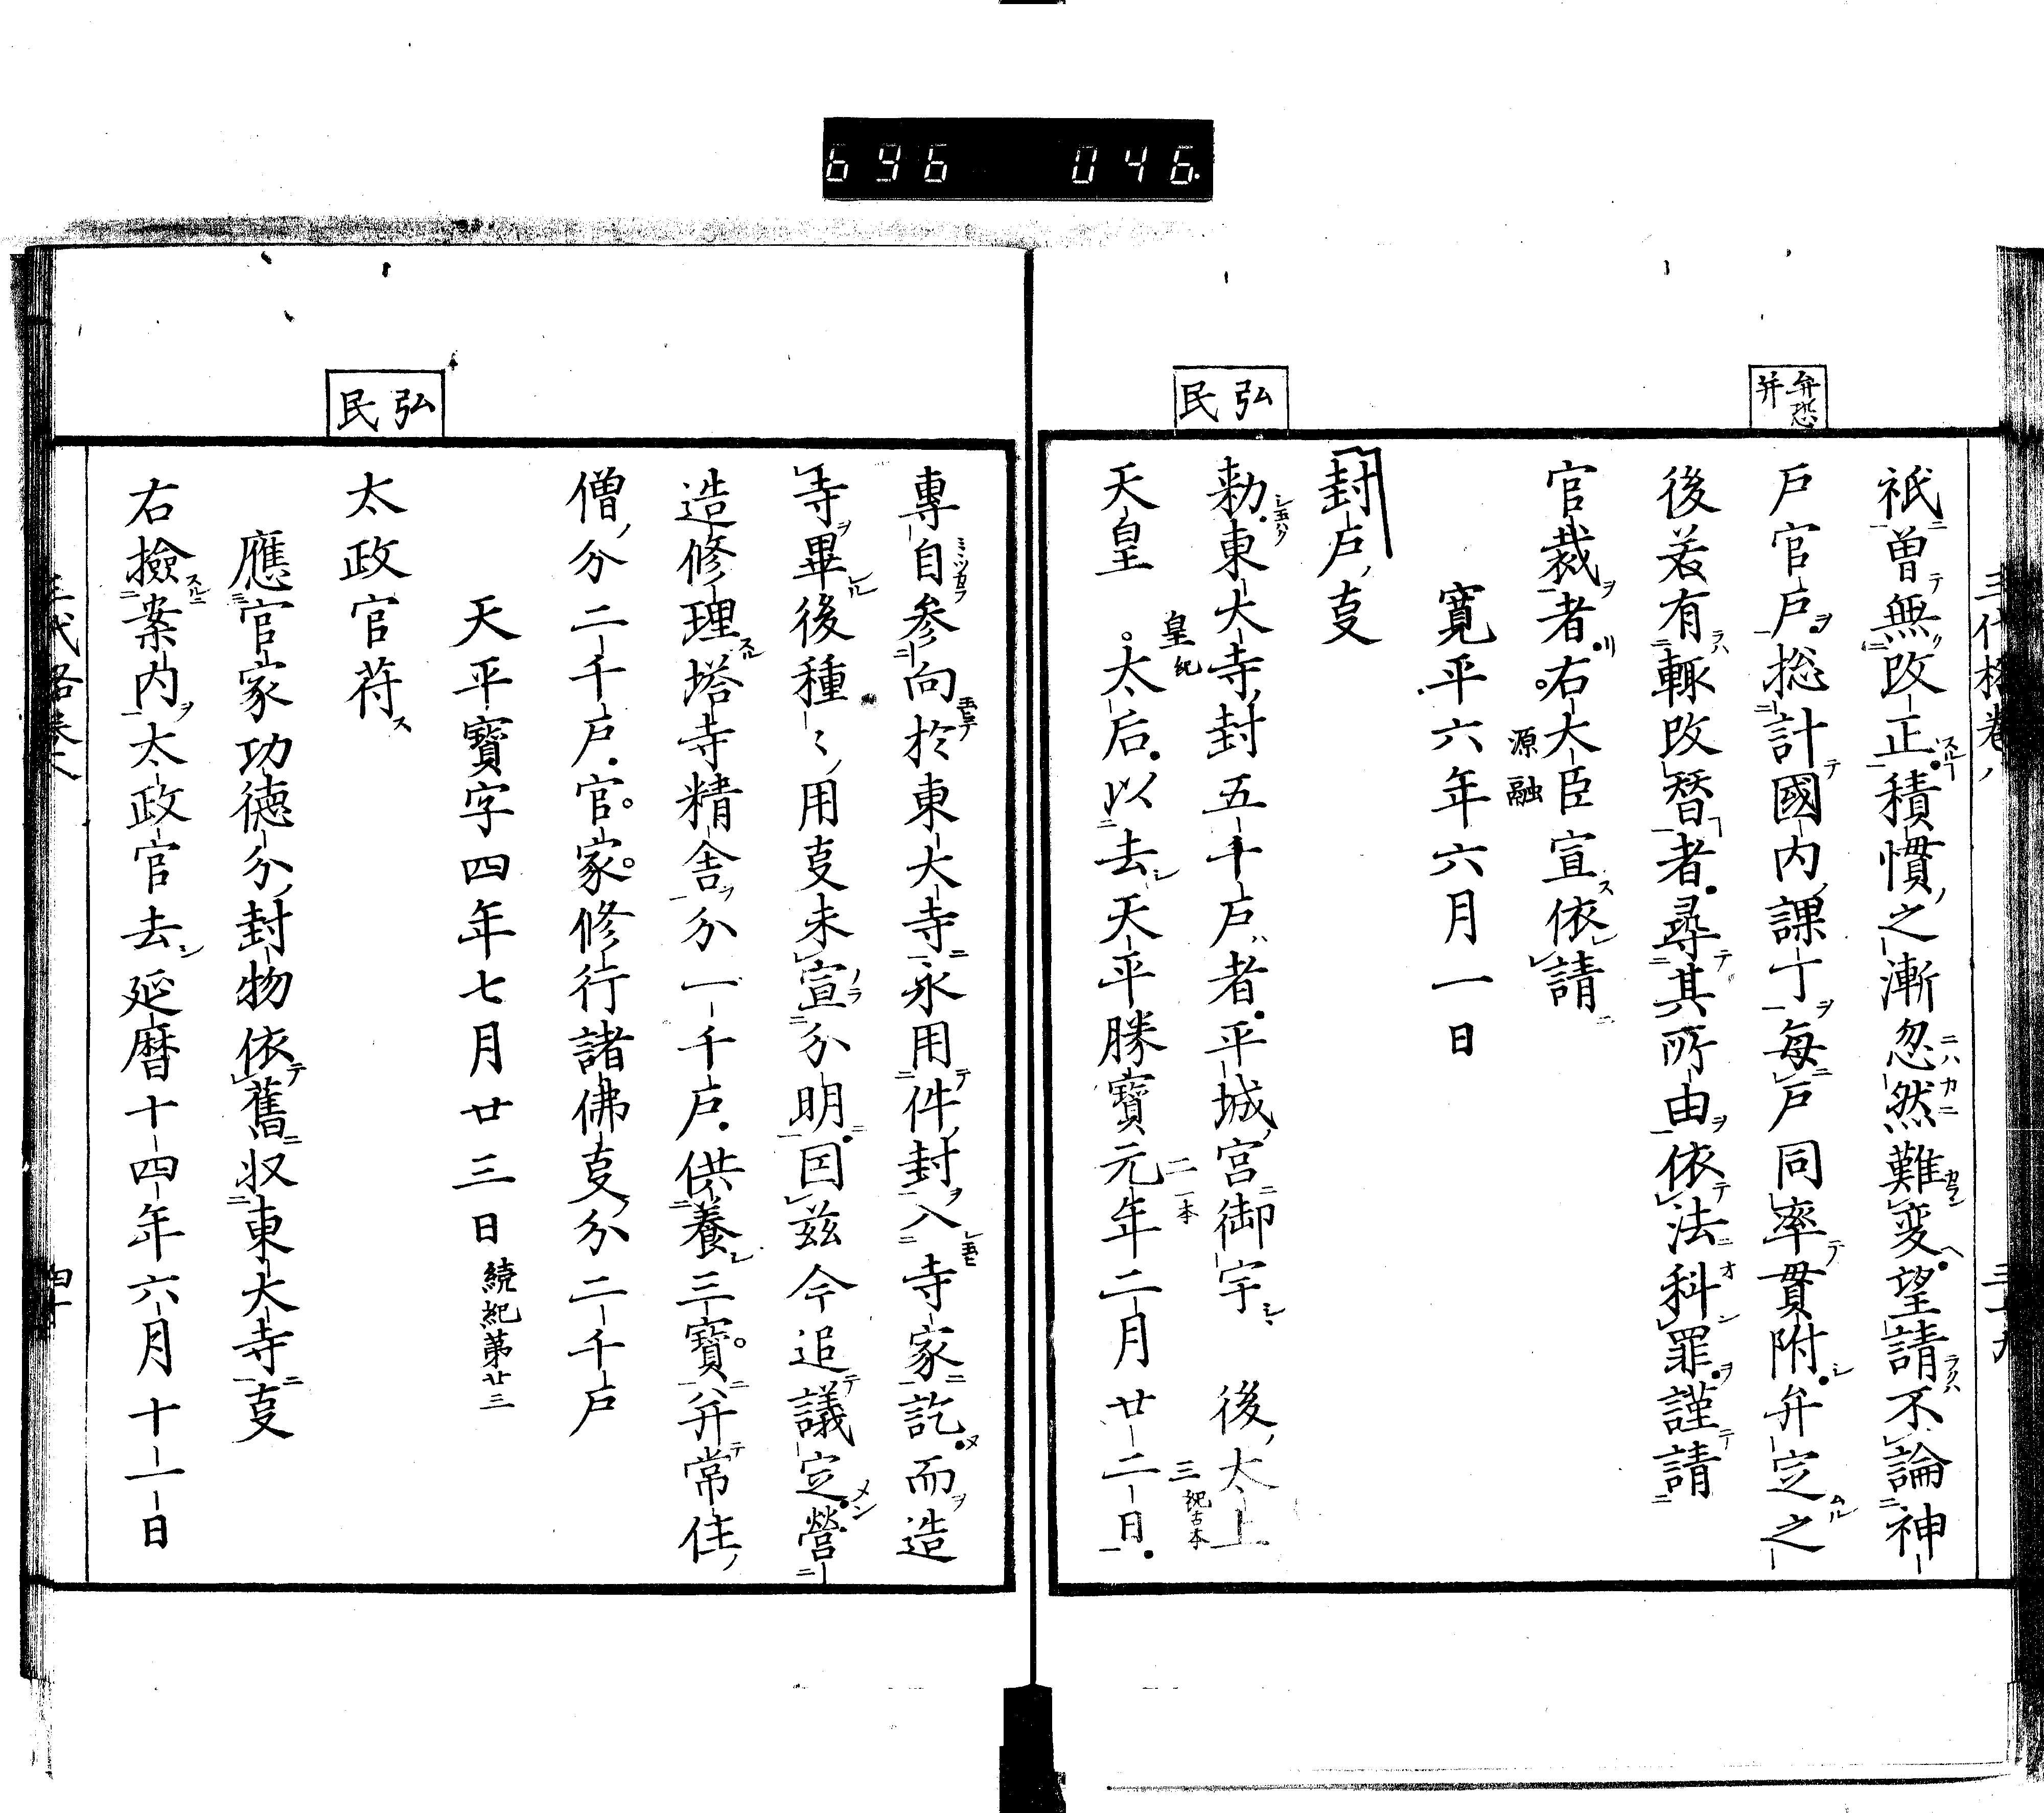 696 046
弁恐
并
三代格巻八
三十九
祇曽無改正積慣之漸忽然難変望請不論神
戸官戸捴計國内課丁毎戸同率貫附弁定之
後若有輙改替者尋其所由依法科罪謹請
官裁者右大臣宣依請
源融
寛平六年六月一日
封戸㕝
弘
民
勅東大寺封五千戸者平城宮御宇 後太上
天皇 太后以去天平勝寶元年二月廿二日
皇紀
二一本
三紀古本
專自参向於東大寺永用件封入寺家訖而造
寺畢後種〻用㕝未宣分明囙兹今追議定營
造修理塔寺精舎分一千戸供養三寶并常住
僧分二千戸官家修行諸佛㕝分二千戸
天平寶字四年七月廿三日 続紀第廿三
弘
民
太政官苻
應官家功徳分封物依舊収東大寺㕝
右撿案内太政官去延暦十四年六月十一日
四十